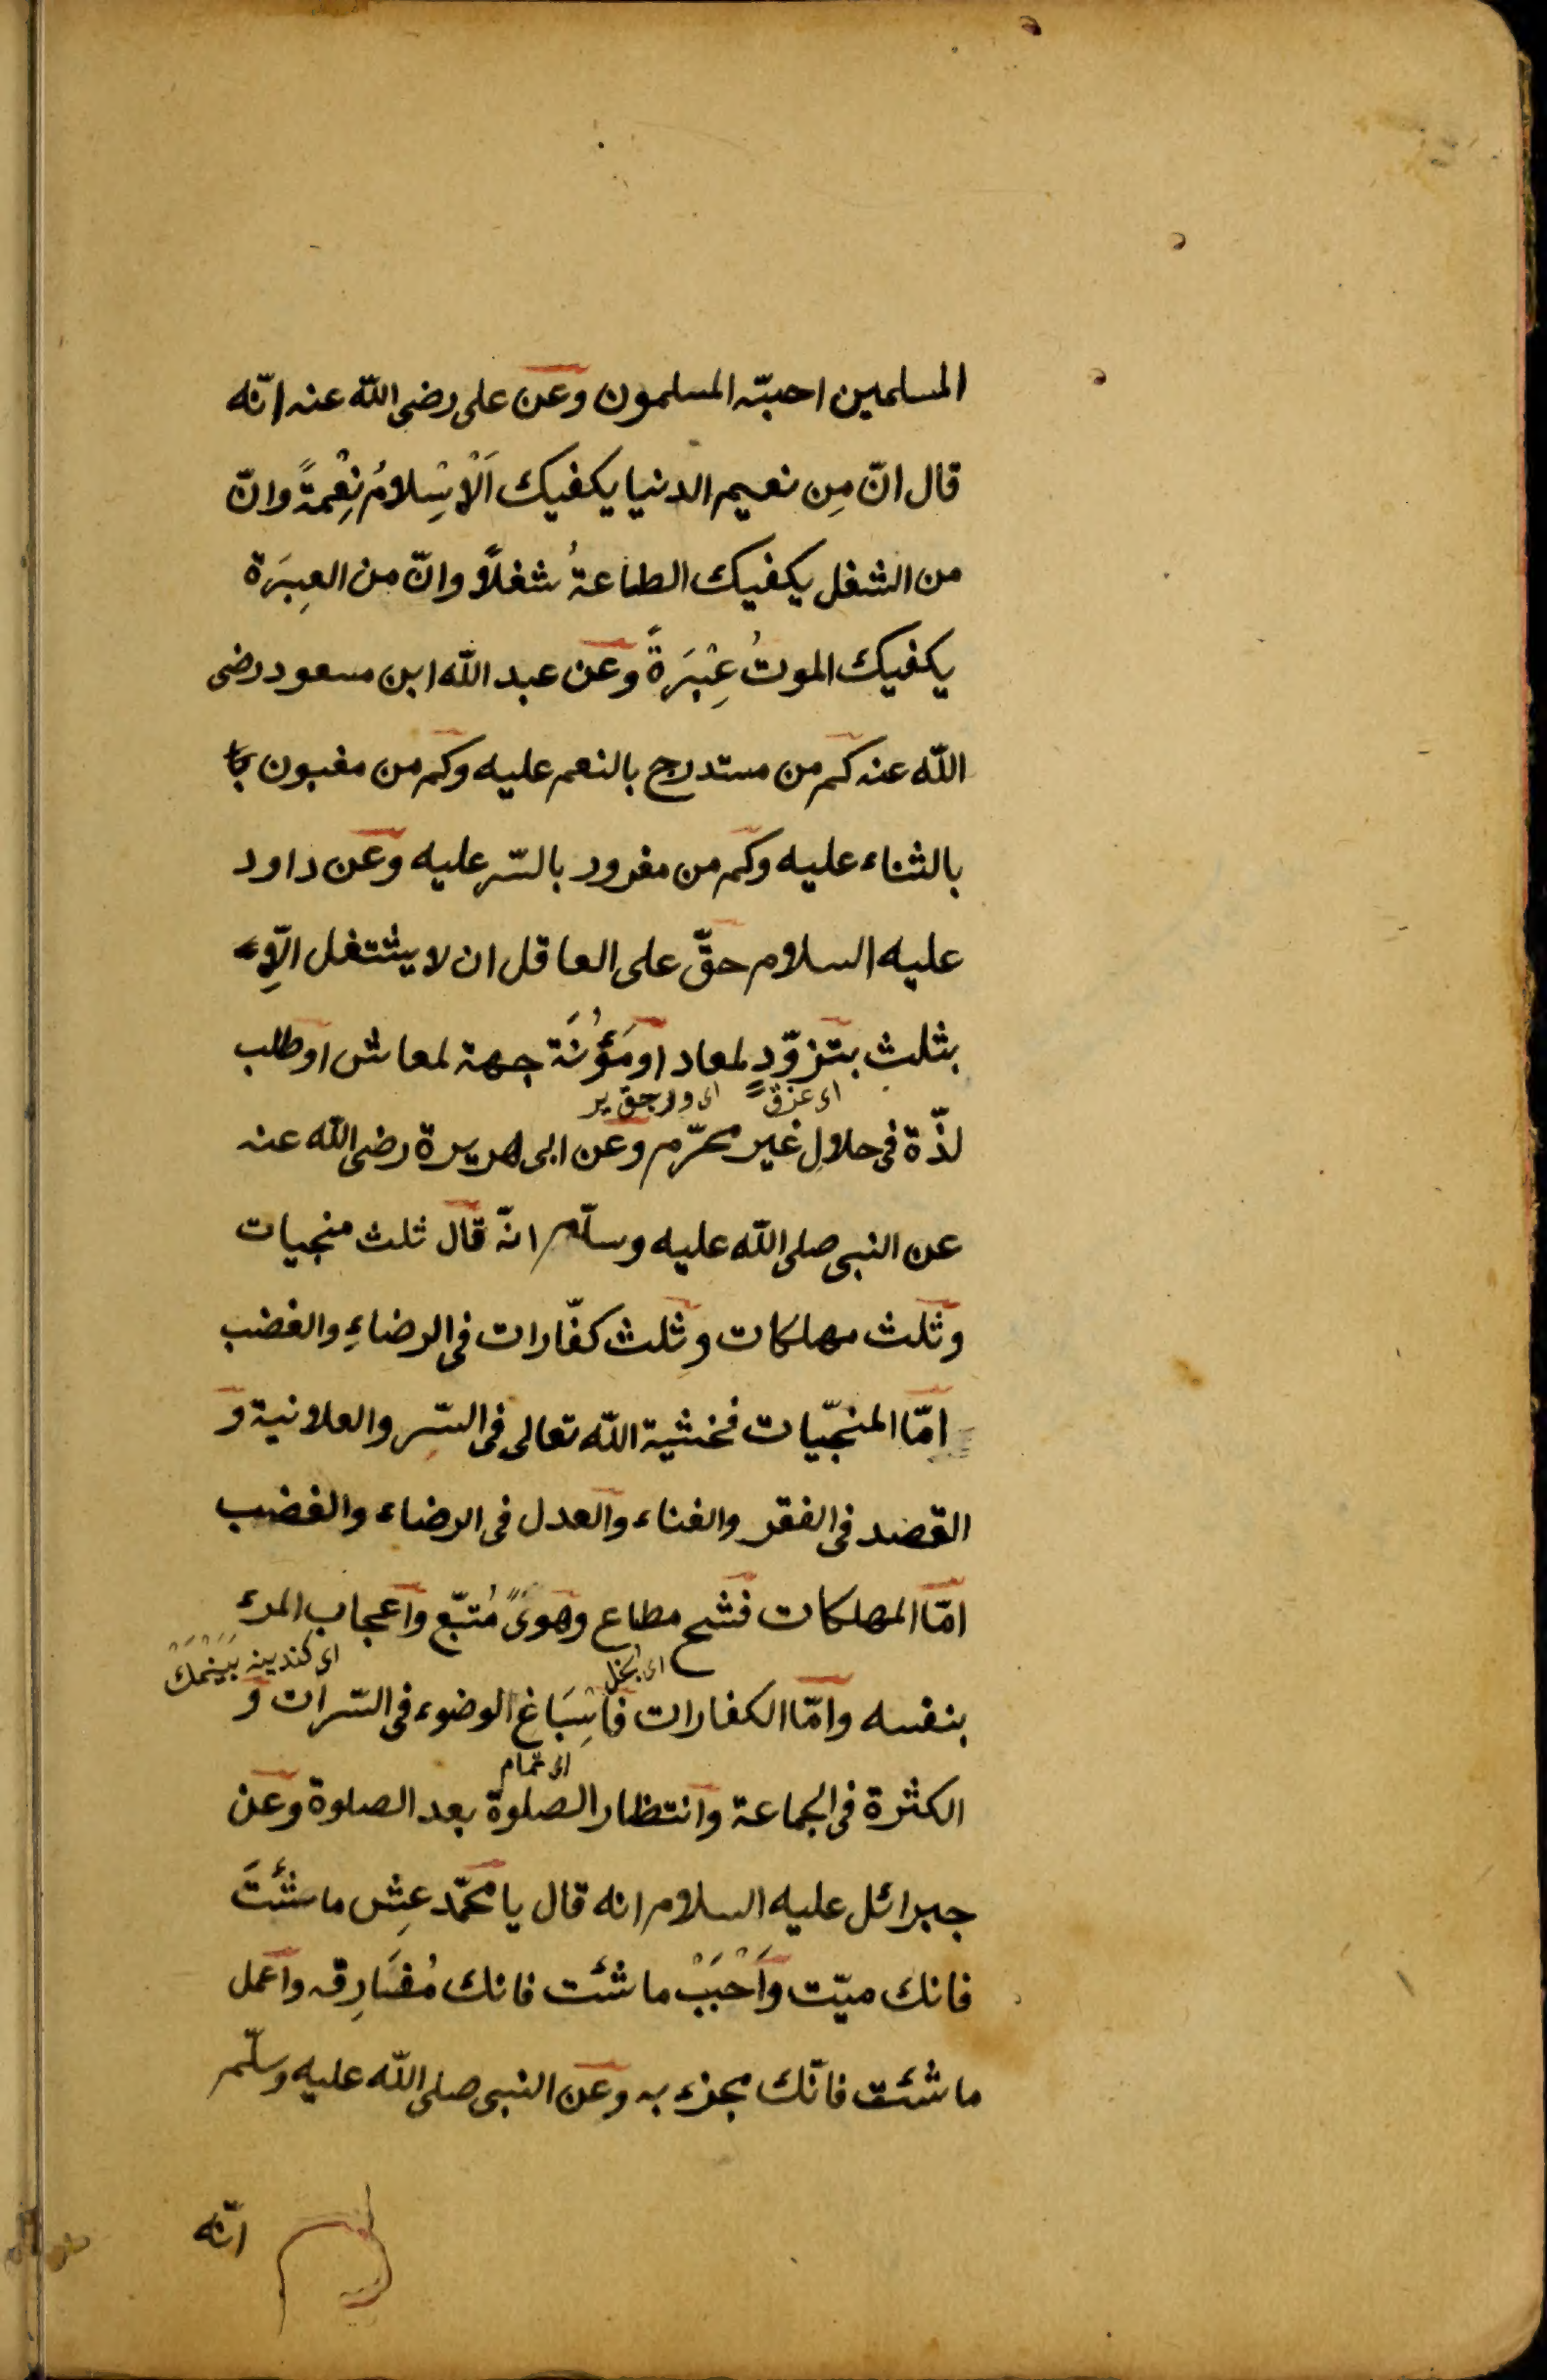 المسلمين احبّه المسلمون وعن على رضى الله عنه انّه
قال انّ مِن نعيم الدنيا يكفيك اَلْاِسْلامُ نِعْمةً وانّ
من الشغل يكفيك الطاعةُ شغلاً وانّ من العِبَرة
يكفيك الموتُ عِبْرَةً وعن عبد الله ابن مسعود رضى
الله عنه كم من مستدرج بالنعم عليه وكم من مغبون
بالثناء عليه وكم من مغرور بالسّتر عليه وعن داود
عليه السلام حقّ على العاقل ان لا يشتغل الّا
بثلث بتزوّدٍ لمعاد او مَؤُنَة جهة لمعاش او طلب
لذّة فى حلالِ غير محرّم وعن ابى هريرة رضى الله عنه
عن النبى صلى الله عليه وسلّم انّه قال ثلث منجيات
وثلث مهلكات وثلث كفّارات فى الرضاءِ والغضب
امّا المنجّيات فخشية الله تعالى فى السّر والعلانية و
القصد فى الفقر والغناء والعدل فى الرضاء والغضب
امّا المهلكات فشح مطاع وهوىً مُتبّع واعجاب المرء
اى بخل
بنفسه وامّا الكفارات فاِسْبَاغ الوضوء فى السّبرات و
اى تمام
الكثرة فى الجماعة وانتظار الصلوة بعد الصلوة وعن
جبرائل عليه السلام انه قال يا محمّد عِش ما شئتَ
فانك ميّت وَاَحْبَبْ ما شئت فانك مُفَارِقه واعمل
ما شئت فانّك مجزء به وعن النبى صلى الله عليه وسلّم
انّه